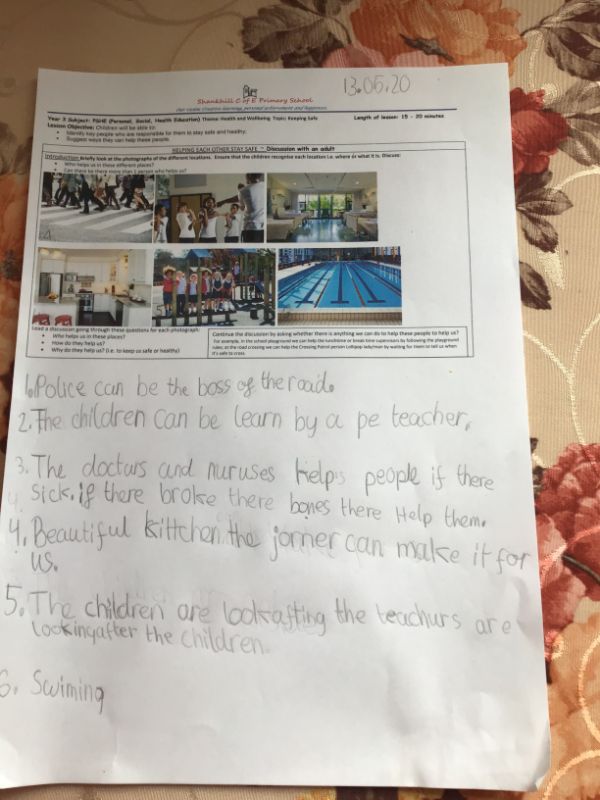 13.05.20
Shankhill C of E Primary School
Year 3 Subject: PSHE (Personal, Social, Health Education) Theme: Health and Wellbeing Topic: Keeping Safe Length of lesson: 15 - 20 minutes
Lesson Objective: Children will be able to:
Identify key people who are responsible for them to stay safe and healthy;
Suggest ways they can help these people.
HELPING EACH OTHER STAY SAFE ~ Discussion with an adult
Introduction Briefly look at the photographs of the different locations. Ensure that the children recognise each location i.e. where or what it is. Discuss:
Who helps us in these different places?
Can there be more than 1 person who helps us?
Lead a discussion going through these questions for each photograph:
Who helps us in these places?
How do they help us?
Why do they help us? (i.e. to keep us safe or healthy)
Continue the discussion by asking whether there is anything we can do to help these people to help us?
For example, in the school playground we can help the lunchtime or break time supervisors by following the playground
rules; at the road crossing we can help the Crossing Patrol person Lollipop lady/man by waiting for them to tell us when
it's safe to cross.
1. Police can be the boss of the road.
2. The children can be learn by a pe teacher.
3. The doctars and nuruses helps people if there
sick. if there broke there bones there Help them.
4. Beautiful kittchen the jorner can make it for
us.
5. The children are lookafting the teachurs are
lookingafter the children.
6. Swiming